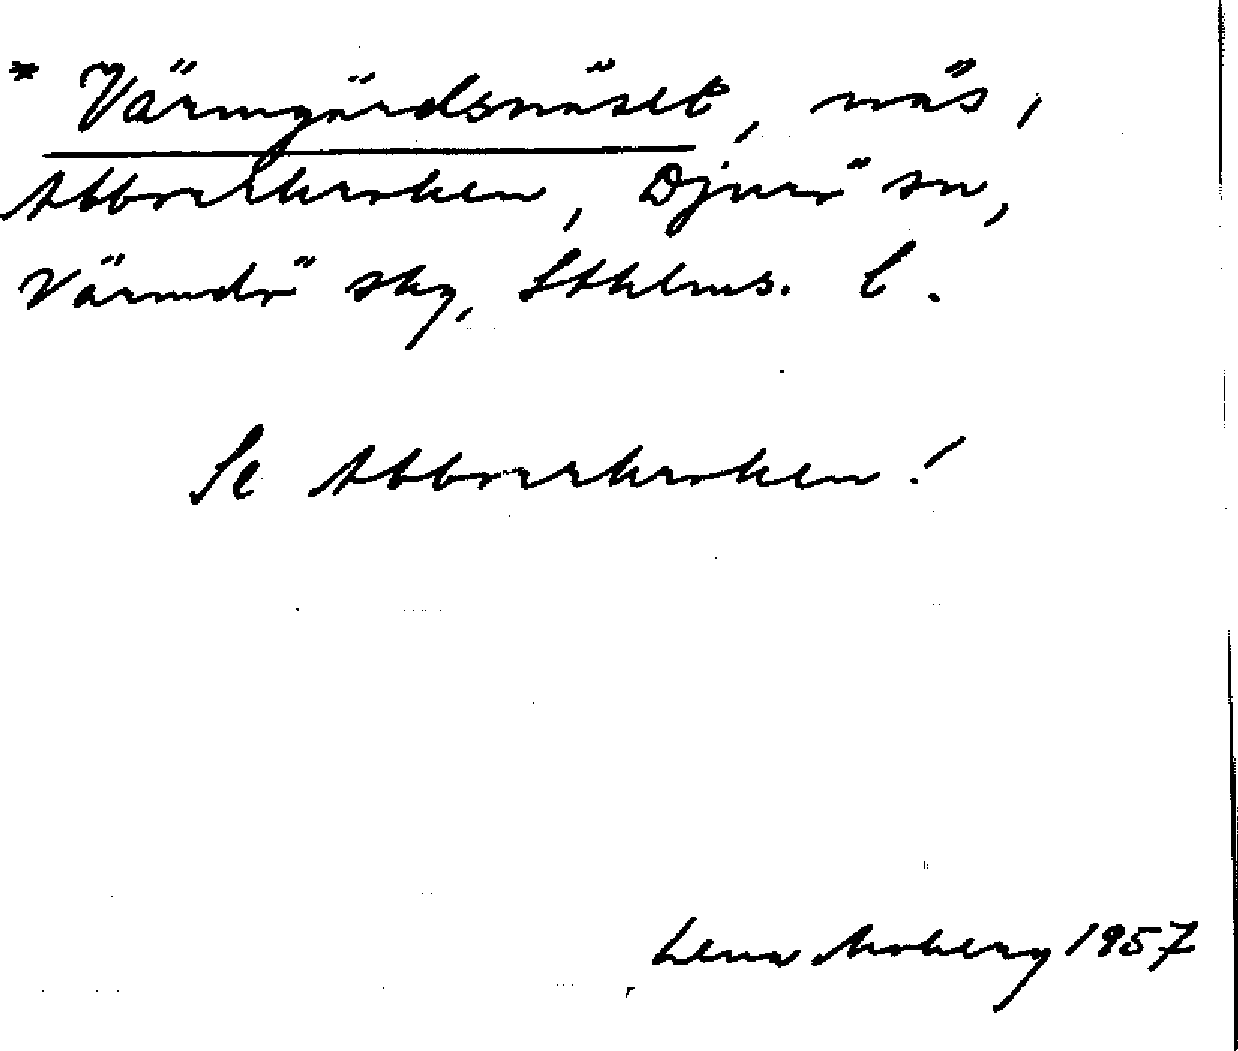 * Värmgärdsnäset, näs,
Abborrkroken, Djurö sn,
Värmdö skg, Sthlms. l.
Se Abborrkroken!
Lena Moberg 1957